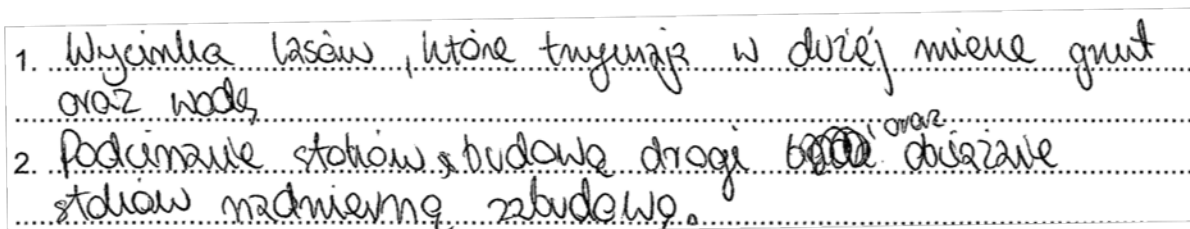 1. Wycinka lasów, które trzymają w dużej mierze grunt
oraz wodę
2. Podcinanie stoków, budową drogi oraz obciążanie
stoków nadmierną zabudową.